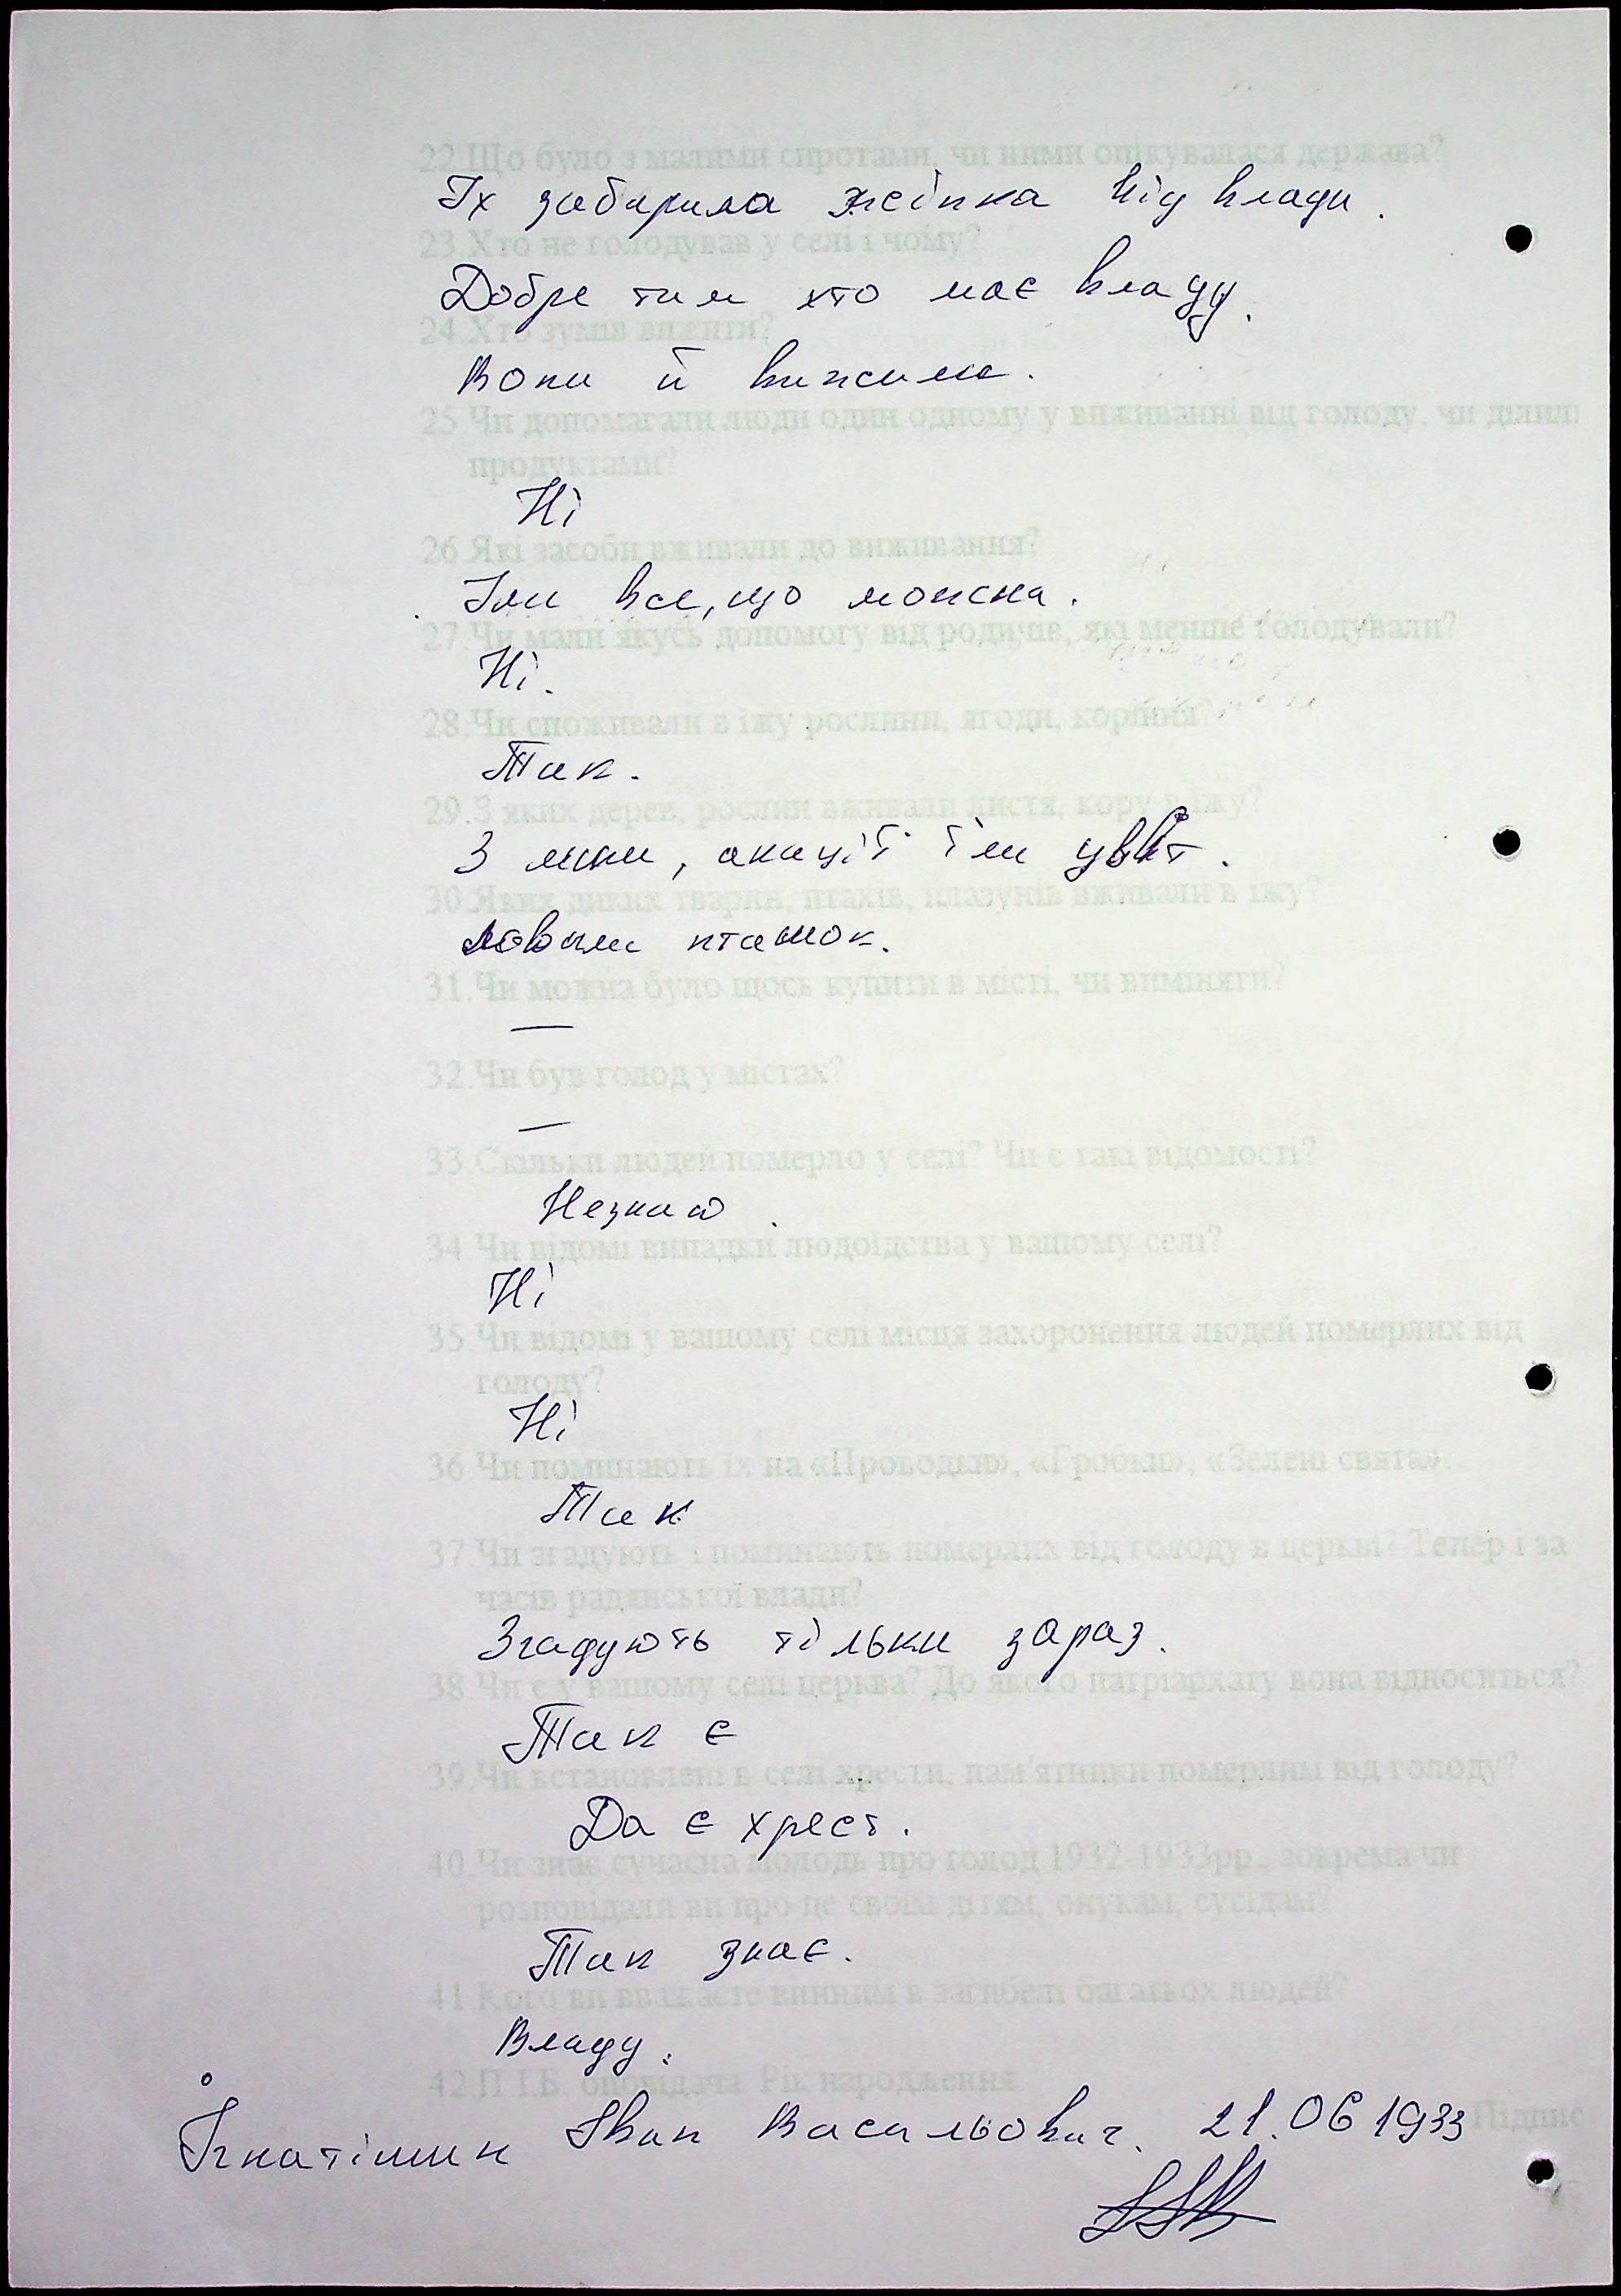 22.Що було з малими сиротами, чи ними опікувалася держава?
Їх забирила жінка від влади.
23.Хто не голодував у селі і чому?
Добре тим хто має владу.
24.Хто зумів вижити?
Вони й вижили.
25.Чи допомагали люди один одному у виживанні від голоду, чи ділили
продуктами?
Ні
26.Які засоби вживали до виживання?
Їли все, що можна.
27.Чи мали якусь допомогу від родичів, які менше голодували?
Ні.
28.Чи споживали в їжу рослини, ягоди, коріння?
Так.
29.З яких дерев, рослин вживали листя, кору в їжу?
З липи, акації їли цвіт.
30.Яких диких тварин, птахів, плазунів вживали в їжу?
Ловили пташок.
31.Чи можна було щось купити в місті, чи виміняти?
—
32.Чи був голод у містах?
—
33.Скільки людей померло у селі? Чи є такі відомості?
Незнаю.
34.Чи відомі випадки людоїдства у вашому селі?
Ні
35.Чи відомі у вашому селі місця захоронення людей померлих від
голоду?
Ні
36.Чи поминають їх на «Проводки», «Гробки», «Зелені свята».
Так
37.Чи згадують і поминають померлих від голоду в церкві? Тепер і за
часів радянської влади?
Згадують тільки зараз.
38.Чи є у вашому селі церква? До якого патріархату вона відноситься?
Так є
39.Чи встановлені в селі хрести, пам'ятники померлим від голоду?
Да є хрест.
40.Чи знає сучасна молодь про голод 1932-1933рр., зокрема чи
розповідали ви про це своїм дітям, онукам, сусідам?
Так знає.
41.Кого ви вважаєте винним в загибелі багатьох людей?
Владу.
42.П.І.Б. оповідача. Рік народження
Іван Васильович. 21.06 1933 Підпис